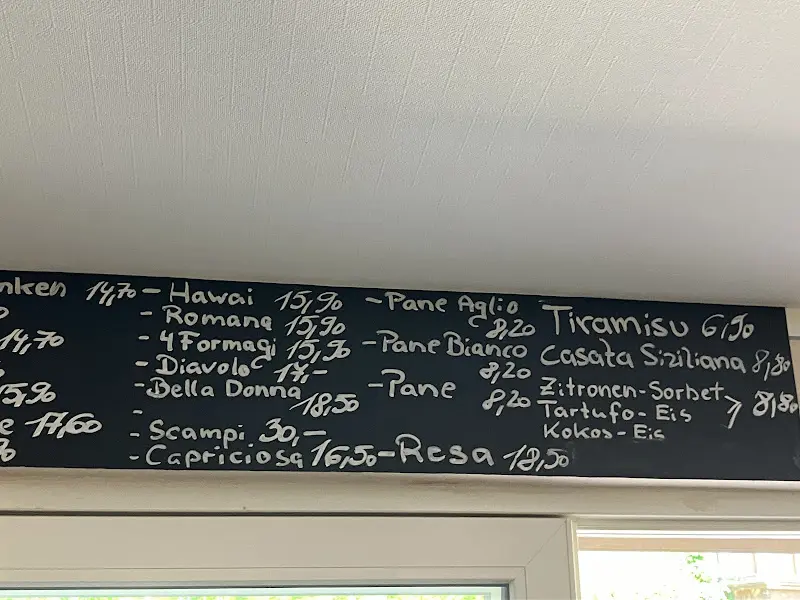 nken 14,70
14,70
15,90
e 17,60
- Hawai 15,90
- Romana 15,90
- 4 Formagi 15,90
- Diavolo 17,-
- Bella Donna
18,50
-
- Scampi 30,-
- Capriciosa 16,50
- Pane Aglio
8,20
- Pane Bianco
8,20
- Pane
8,20
- Resa 18,50
Tiramisu 6,50
Casata Siziliana 8,80
Zitronen-Sorbet
Tartufo-Eis 8,80
Kokos-Eis